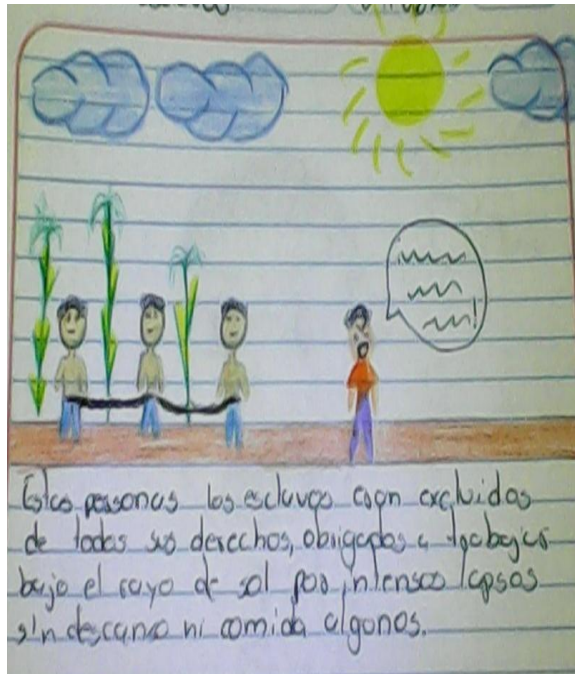 Estas personas los esclavos eran excluidos
de todos sus derechos, obrigados a trabajar
bajo el rayo de sol por intensos lapsos
sin descanso ni comida algonos.